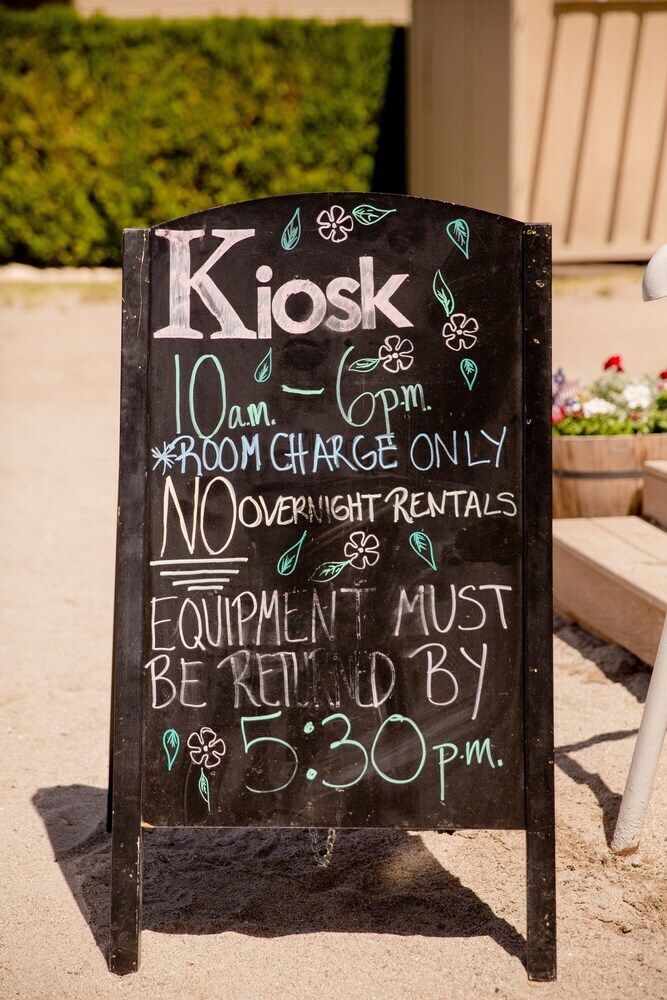 Kiosk
10a.m. - 6p.m.
*ROOM CHARGE ONLY
NO OVERNIGHT RENTALS
EQUIPMENT MUST
BE RETURNED BY
5:30p.m.